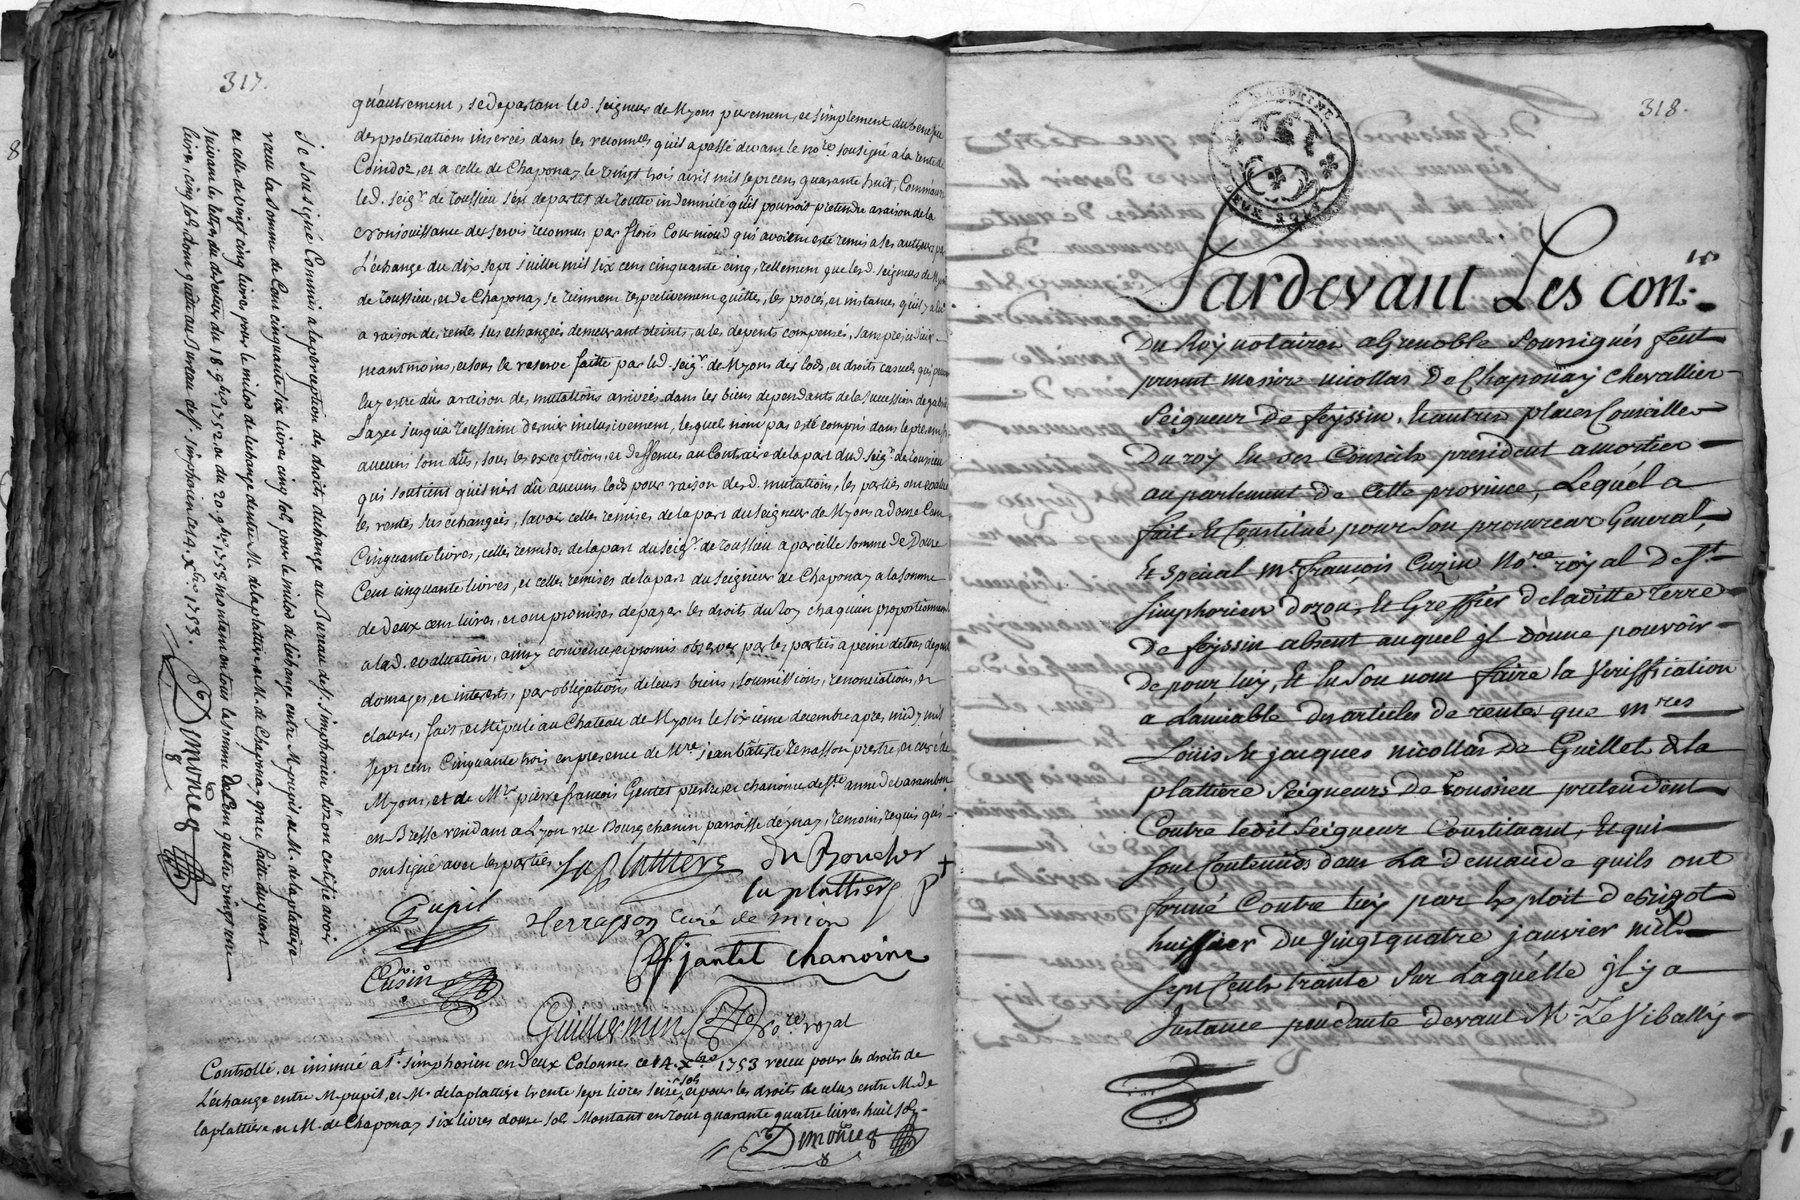 317.
qu'autrement, se departant led. seigneur de Myons purement, et simplement du benefice
des protestations inserées dans les reconnces qu'il a passé devant le nore soussigné a la rente de
Coindoz, et a celle de Chaponay le vingt trois avril mil sept cens quarante huit, Comme aussi
led. seigr de Toussieu s'est departit de toutte indemnité qu'il pourroit pretendre a raison de la
nonjouissance des servis reconnus par floris Cournioud qui avoient esté remis a ses autheurs par
L'échange du dix sept juillet mil six cens cinquante cinq, tellement que lesd. seigneurs de Myons
de Toussieu, et de Chaponay se tiennent respectivement quittes, les procés, et instances, qu'il y a eu
a raison des rentes sus echangées demeurant éteints, et les depents compensés, sans prejudice
neantmoins, et sous la reserve faitte par led. seigr de Myons des lods, et droits casuels qui peuvent
luy estre dûs a raison des mutations arrivées dans les biens dependants de la succession de
Lazer jusqu'a Toussaint dernier inclusivement, lesquels n'ont pas esté compris dans le present si
aucuns sont dûs, sous les exceptions, et deffenses au Contraire de la part dud. seigr de Toussieu
qui soutient qu'il n'est dû aucuns lods pour raison desd. mutations, les parties ont evalué
les rentes sus echangées, savoir celles remises de la part du seigneur de Myons a Douze Cent
Cinquante livres, celles remises de la part du seigr de Toussieu a pareille somme de Douze
Cent cinquante livres, et celles remises de la part du seigneur de Chaponay a la somme
de Deux cens livres, et ont promises de payer les droits du Roy chaquun proportionnement
a lad. evaluation, ainsy convenu, et promis observer par les parties a peine de tous depents
domages, et interests, par obligations de leurs biens, soumissions, renonciations, et
clauses, fait, et stipulé au Chateau de Myons le sixieme decembre apres midy mil
sept cens Cinquante trois en presence de Mre jean bâtiste Terrasson prestre, et curé de
Myons, et de Mre pierre françois Gentet prestre, et chanoine de Ste anne de
en Bresse residant a Lyon rue Bourg chanin parroisse d'Eynay, temoins requis qui
ont signé avec les parties.
La plattiere
du Boucher
la plattiere
Pupil
Terrasson curé de mion
jantet chanoine
Cusin
Guillermin
no.re royal
Controllé, et insinué a St simphorien en deux Colonnes ce 14. xbre 1753 receu pour les droits de
L'échange entre M. pupil, et M. de la plattiere trente sept livres seize sols, et pour les droits de celuy entre M. de
la plattiere, et M. de Chaponay six livres douze sols Montant en tout quarante quatre livres huit sols
Demonceg
Je soussigné Commis a la perception des droits d'echange au Bureau de St. simphorien d'ozon certifie avoir
receu la somme de Cent cinquante six livres cinq sols pour le milod de l'échange entre M. pupil et M. de la plattiere
et celle de vingt cinq livres pour le milod de l'echange d'entre M. de la plattiere et M. de Chaponay, grace faitte du quart
suivant les lettres du directeur du 18. 9bre 1752 et du 20. 9bre 1753 montent en tout la somme de Cent quatre vingt une
livres cinq sols dont quitte au Bureau de St. simphorien ce 14. xbre 1753.
Demonceg
318.
DAUPHINE
DEUX SOLS
Pardevant Les con.rs
Du Roy notaires a Grenoble Soussignés feut
present messire nicollas De Chaponay Chevallier
Seigneur De feyssin, & autres places Conseiller
Du roy En ses Conseils president a mortier
au parlement de Cette province, Lequél a
fait & Constitué pour Son procureur General,
Et Special Mr. françois Cuzin No.re royal De St.
Simphorien Dozon, & Greffier De laditte Terre
De feyssin absent auquel jl donne pouvoir
De pour luy, & En Son nom faire la Veriffication
a Lamiable Des articles De rentes que mres
Louis & jacques nicollas De Guillet De la
plattiere Seigneurs De Toussieu pretendent
Contre ledit Seigneur Constituant, & qui
Sont Contenuos dans La Demande quils ont
formé Contre luy par Exploit De
huissier Du Vingt quatre janvier mil
Sept Cents trante Sur Laquélle jl y a
Instance pendante devant Mr. Le Viballij